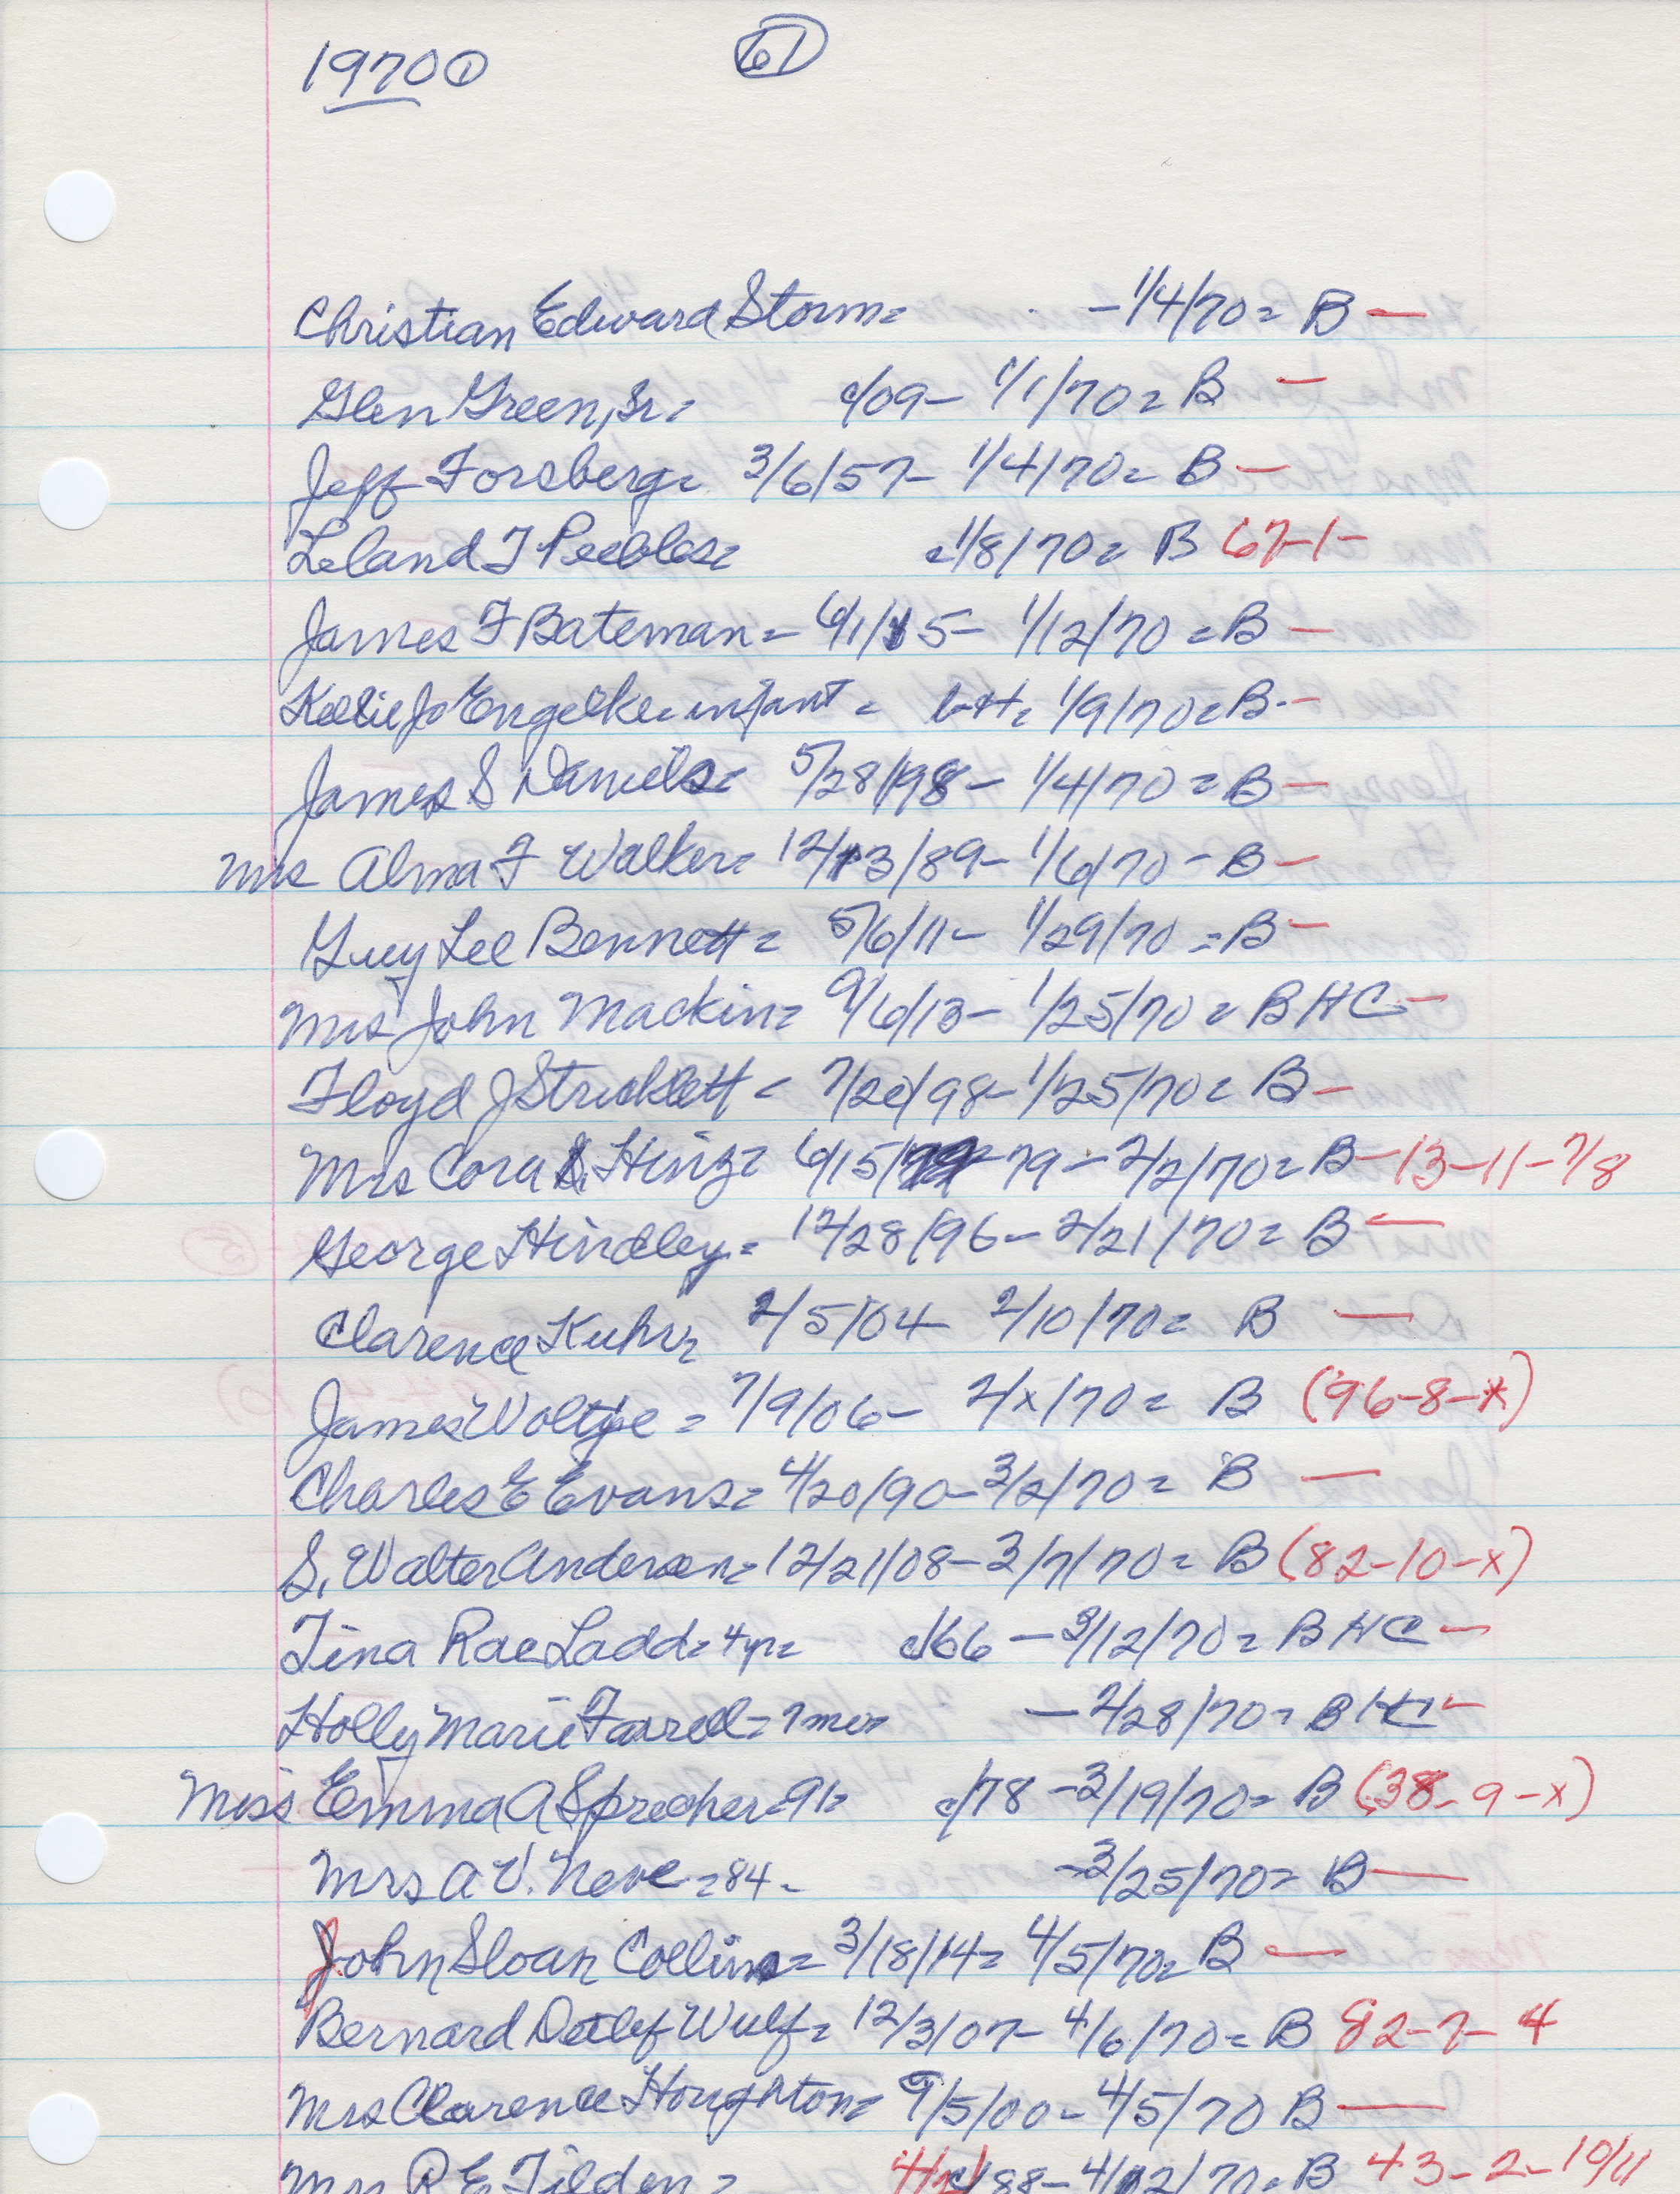 1970 ① 61
Christian Edward Storm= - 1/4/70= B —
Glen Green, Sr= c/09- 1/1/70= B —
Jeff Forsberg= 3/6/57- 1/4/70= B —
Leland J Peebles= c1/8/70= B 67-1-
James F Bateman= 6/1/15- 1/12/70=B —
Kellie Jo Engelke= infant= 1/9/70=B-—
James S Daniels= 5/28/98- 1/4/70=B —
Mrs Alma F Walker= 12/13/89- 1/6/70-B —
Guy Lee Bennett= 5/6/11- 1/29/70=B —
Mrs John Mackin= 9/6/13- 1/25/70=BHC —
Floyd J Stricklett= 7/20/98- 1/25/70= B —
Mrs Cora Hinz= 6/15/ 79-2/2/70=B-13-11-7/8
George Hindley= 12/28/96-2/21/70= B —
Clarence Kuhr= 2/5/04- 2/10/70= B —
James Woltje= 7/9/06- 2/x/70= B (96-8-x)
Charles E Evans= 4/20/90-3/2/70= B —
S. Walter Anderson=12/21/08-3/7/70= B (82-10-x)
Tina Rae Ladd=4yr= c/66 -3/12/70=BHC —
Holly Marie Farrell= mo= -2/28/70=BHC —
Miss Emma A Sprecher=91= c/78 -3/19/70= B (38-9-x)
Mrs A V. Neve=84- -3/25/70= B —
John Sloan Collins= 3/18/14= 4/5/70= B —
Bernard Detlef Wulf= 12/3/07-4/6/70=B 82-7-4
Mrs Clarence Houghton= 9/5/00-4/5/70 B —
Mrs R E Tilden= c/88-4/12/70=B 43-2-10/11